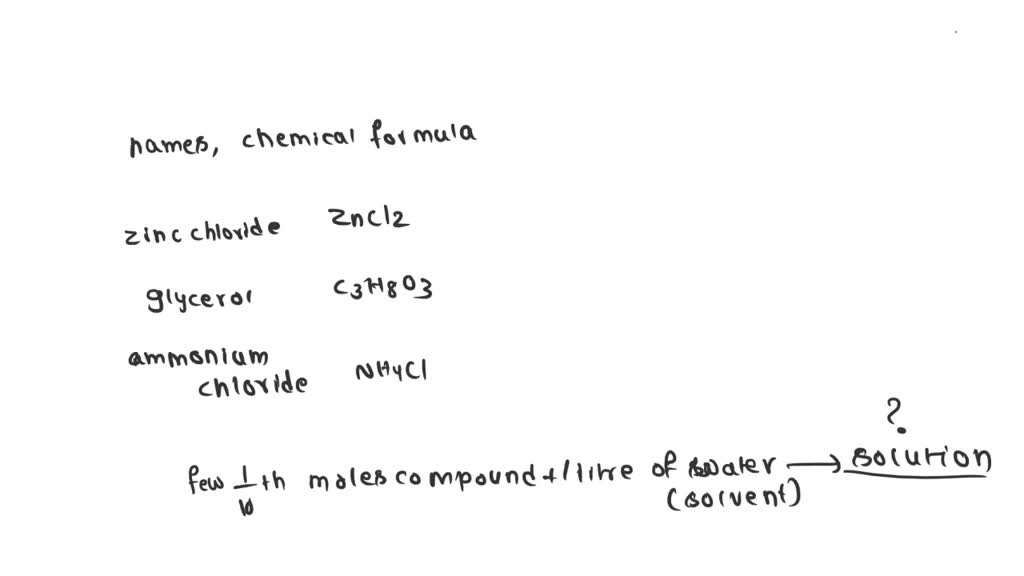 names, chemical formula
zinc chloride ZnCl2
glycerol C3H8O3
ammonium
chloride NH4Cl
?
few 1/10 th moles compound + 1 litre of water → solution
(solvent)